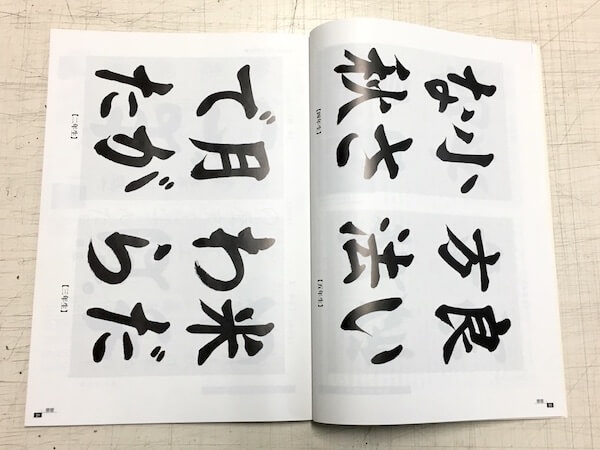 月が
でた
【二年生】
米だ
わら
【三年生】
小さ
な秋
【四年生】
良い
方法
【五年生】